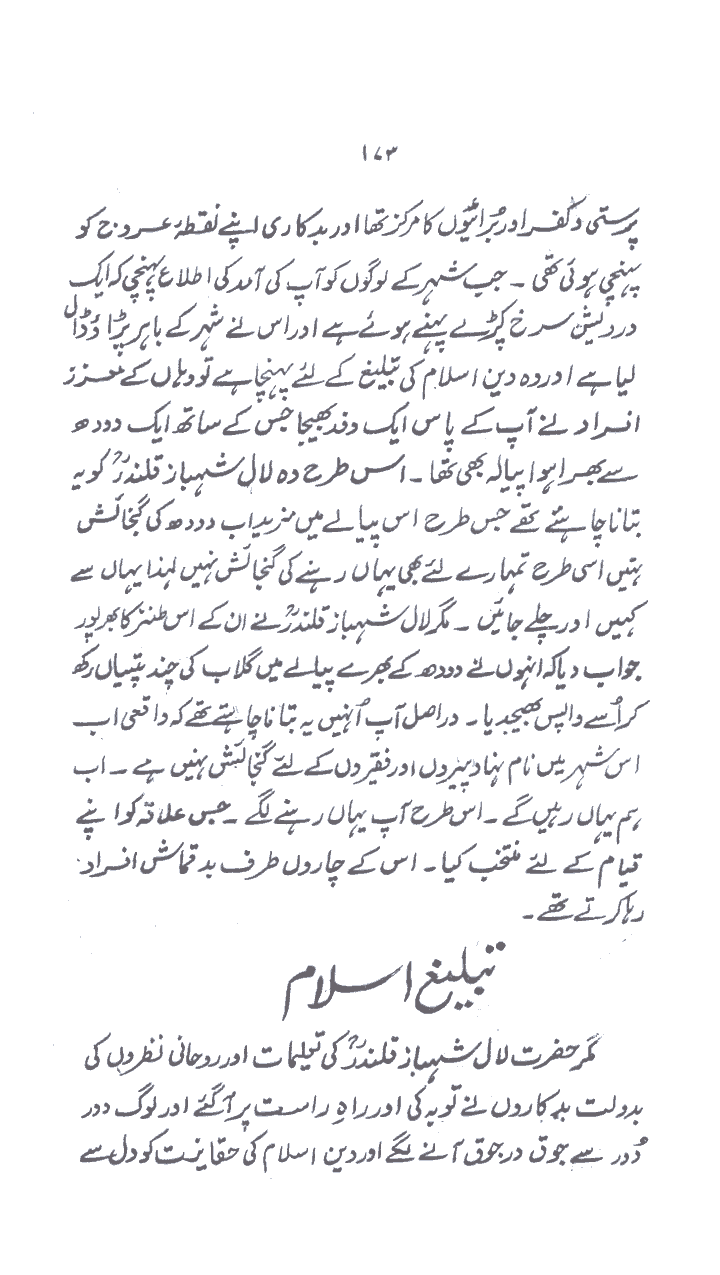 ۱۷۳
پرستی و کفر اور بُرائیوں کا مرکز تھا اور بدکاری اپنے نقطۂ عروج کو
پہنچی ہوئی تھی ۔ جب شہر کے لوگوں کو آپ کی آمد کی اطلاع پہنچی کہ ایک
درویش سرخ کپڑے پہنے ہوئے ہے اور اس نے شہر کے باہر پڑاؤ ڈال
لیا ہے اور وہ دین اسلام کی تبلیغ کے لئے پہنچا ہے تو وہاں کے معزز
افراد نے آپ کے پاس ایک وفد بھیجا جس کے ساتھ ایک دودھ
سے بھرا ہوا پیالہ بھی تھا ۔ اس طرح وہ لال شہباز قلندرؒ کو یہ
بتانا چاہتے تھے جس طرح اس پیالے میں مزید اب دودھ کی گنجائش
نہیں اسی طرح تمہارے لئے بھی یہاں رہنے کی گنجائش نہیں لہذا یہاں سے
کہیں اور چلے جائیں ۔ مگر لال شہباز قلندرؒ نے ان کے اس طنز کا بھرپور
جواب دیا کہ انہوں نے دودھ کے بھرے پیالے میں گلاب کی چند پتیاں رکھ
کر اُسے واپس بھیجدیا ۔ دراصل آپ اُنہیں یہ بتانا چاہتے تھے کہ واقعی اب
اس شہر میں نام نہاد پیروں اور فقیروں کے لئے گنجائش نہیں ہے ۔ اب
ہم یہاں رہیں گے ۔ اس طرح آپ یہاں رہنے لگے ۔ جس علاقہ کو اپنے
قیام کے لئے منتخب کیا ۔ اس کے چاروں طرف بدقماش افراد
رہا کرتے تھے ۔
تبلیغ اسلام
مگر حضرت لال شہباز قلندرؒ کی تعلیمات اور روحانی نظروں کی
بدولت بدکاروں نے توبہ کی اور راہِ راست پر آگئے اور لوگ دور
دُور سے جوق در جوق آنے لگے اور دین اسلام کی حقانیت کو دل سے